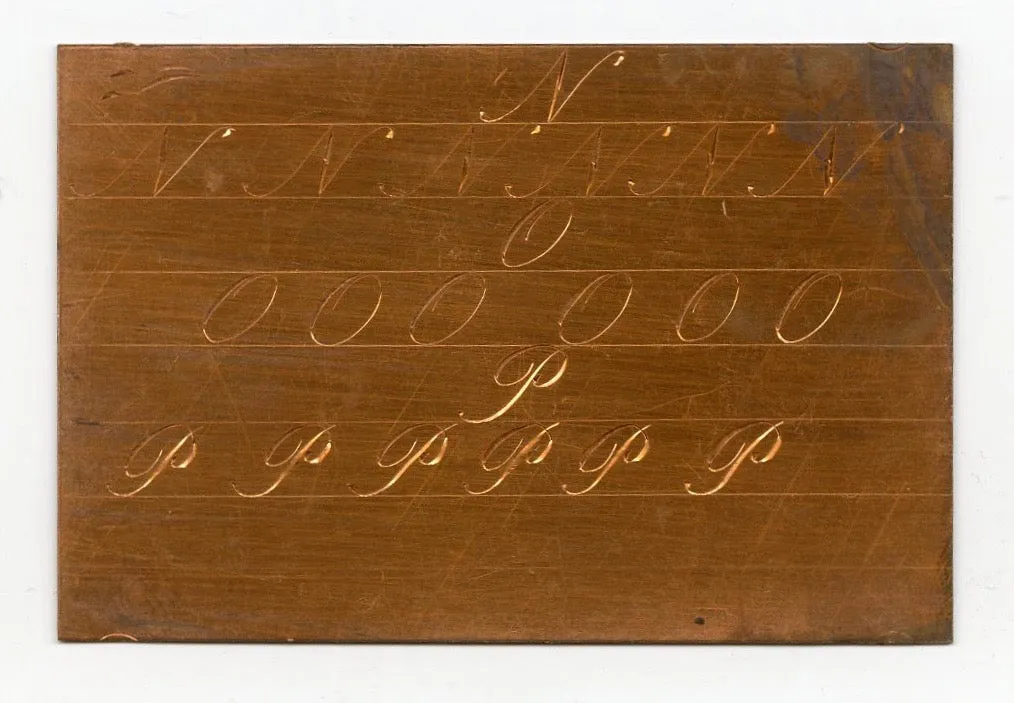 N
N N N N N N
O
O O O O O O
P
P P P P P P